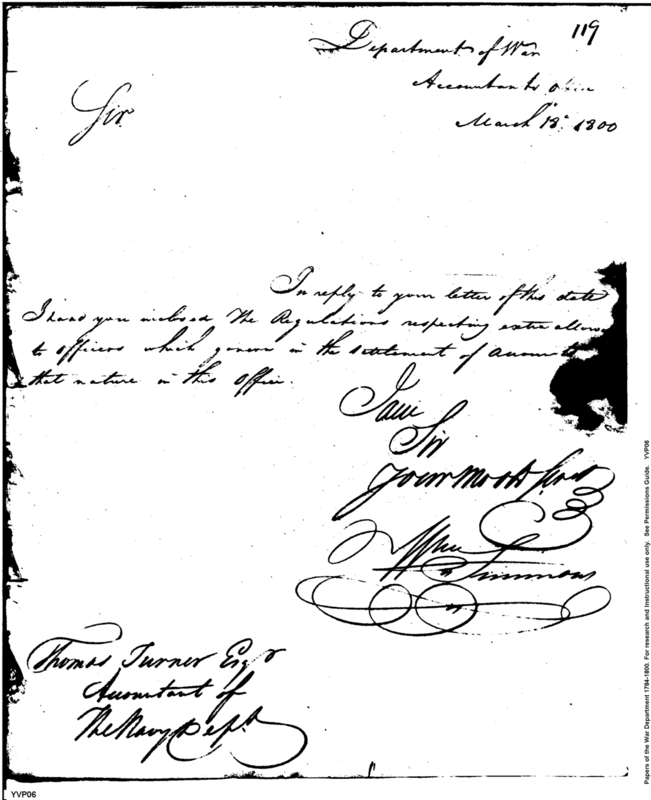 119
Department of War
Accountants office
March 18th 1800
Sir
In reply to your letter of this date
I hand you inclosed The Regulations respecting extra allow
to officers which govern in the settlement of accounts
that nature in this office.
I am
Sir
your Mo Ob Servt
Wm Simmons
Thomas Turner Esqr
Accountant of
The Navy Dept
Papers of the War Department 1784-1800. For research and instructional use only. See Permissions Guide. YVP06
YVP06